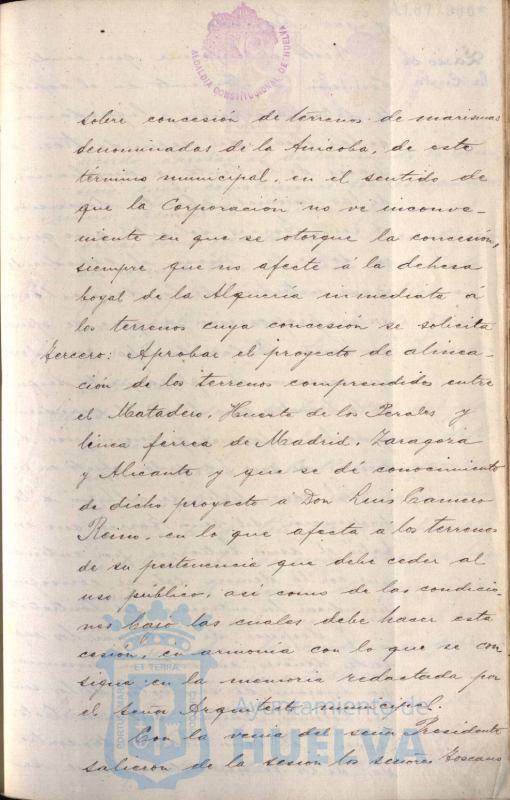 ALCALDIA CONSTITUCIONAL DE HUELVA
sobre concesión de terrenos de marismas
denominadas de la Anicoba, de este
término municipal, en el sentido de
que la Corporación no vé inconve-
niente en que se otorgue la concesión,
siempre que no afecte á la dehesa
boyal de la Alquería inmediata á
los terrenos cuya concesión se solicita
Tercero: Aprobar el proyecto de alinea-
ción de los terrenos comprendidos entre
el Matadero, Huerta de los Perales y
línea férrea de Madrid, Zaragoza
y Alicante y que se dé conocimiento
de dicho proyecto á Don Luis
Reino, en lo que afecta á los terrenos
de su pertenencia que debe ceder al
uso público, así como de las condicio-
nes bajo las cuales debe hacer esta
cesión, en armonía con lo que se con
signa en la memoria redactada por
el señor Arquitecto municipal.
Con la venia del señor Presidente
salieron de la sesión los señores Toscano
ET TERRA
PORTUS MARIS
CUSTODIA
Ayuntamiento de
HUELVA